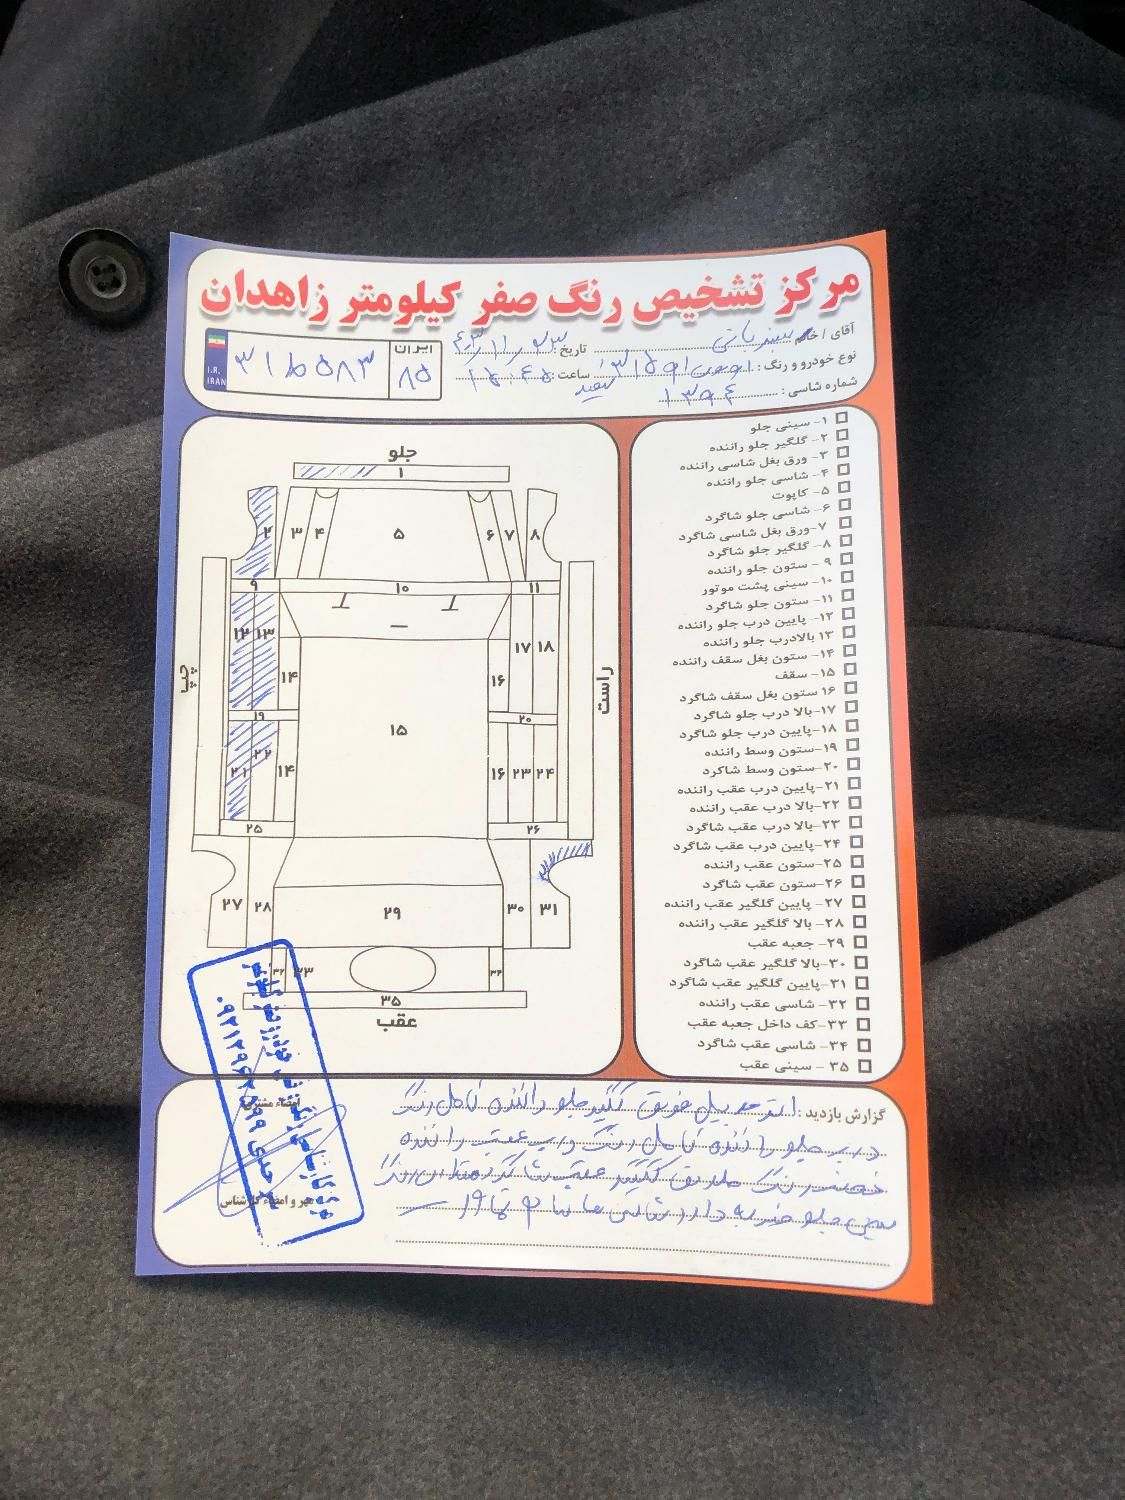 مرکز تشخیص رنگ صفر کیلومتر زاهدان
آقای / خانم
تاریخ: ۴۰۳/۱۱/۲۳
نوع خودرو و رنگ: سفید
ساعت:
شماره شاسی: ۱۳۹۴
I.R. IRAN
ایران
۸۵
جلو
۱
۲ ۳ ۴ ۵ ۶ ۷ ۸
۹ ۱۰ ۱۱
۱۲ ۱۳ ۱۴ ۱۶ ۱۷ ۱۸
چپ
راست
۱۵
۱۹ ۲۰
۲۱ ۲۲ ۱۴ ۱۶ ۲۳ ۲۴
۲۵ ۲۶
۲۷ ۲۸ ۲۹ ۳۰ ۳۱
۳۲ ۳۳ ۳۴
۳۵
عقب
۱- سینی جلو
۲- گلگیر جلو راننده
۳- ورق بغل شاسی راننده
۴- شاسی جلو راننده
۵- کاپوت
۶- شاسی جلو شاگرد
۷-ورق بغل شاسی شاگرد
۸- گلگیر جلو شاگرد
۹ - ستون جلو راننده
۱۰- سینی پشت موتور
۱۱- ستون جلو شاگرد
۱۲- پایین درب جلو راننده
۱۳ بالادرب جلو راننده
۱۴- ستون بغل سقف راننده
۱۵- سقف
۱۶ ستون بغل سقف شاگرد
۱۷-بالا درب جلو شاگرد
۱۸-پایین درب جلو شاگرد
۱۹-ستون وسط راننده
۲۰-ستون وسط شاگرد
۲۱-پایین درب عقب راننده
۲۲-بالا درب عقب راننده
۲۳-بالا درب عقب شاگرد
۲۴-پایین درب عقب شاگرد
۲۵-ستون عقب راننده
۲۶-ستون عقب شاگرد
۲۷- پایین گلگیر عقب راننده
۲۸- بالا گلگیر عقب راننده
۲۹- جعبه عقب
۳۰-بالا گلگیر عقب شاگرد
۳۱-پایین گلگیر عقب شاگرد
۳۲- شاسی عقب راننده
۳۳-کف داخل جعبه عقب
۳۴- شاسی عقب شاگرد
۳۵ - سینی عقب
گزارش بازدید: اتومبیل فوق گلگیر جلو راننده کامل رنگ
درب جلو راننده کامل رنگ درب عقب راننده
رنگ گلگیر عقب شاگرد رنگ
سینی جلو ضربه دارد شاسی ها سالم
امضاء مشتری
مهر و امضاء کارشناس